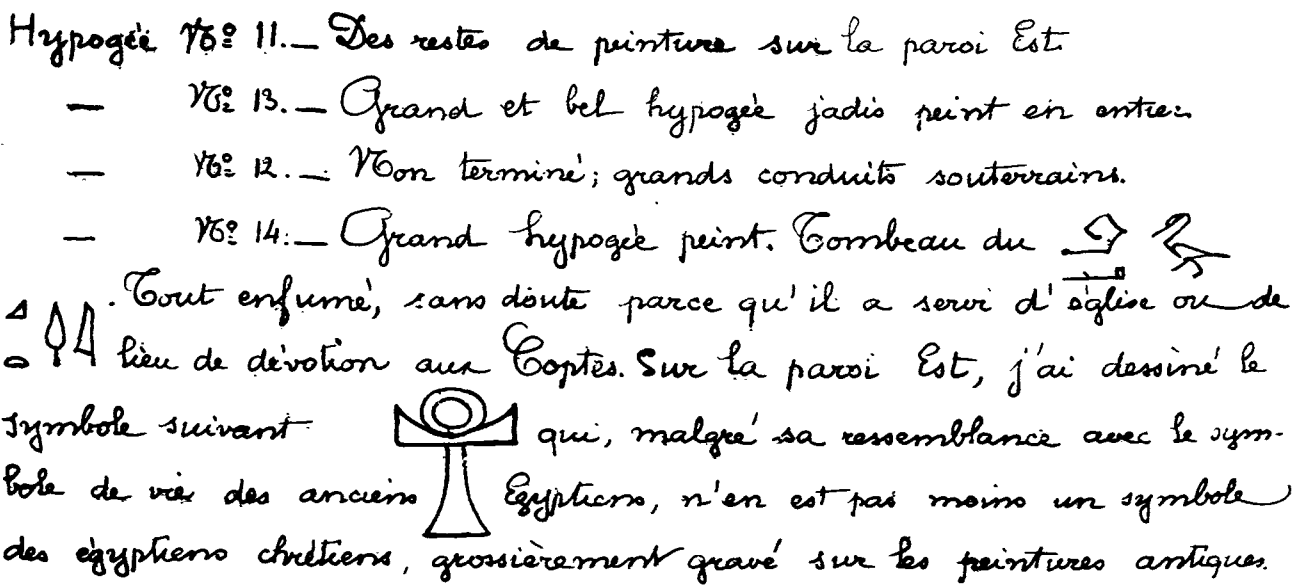 Hypogée Nº 11. — Des restes de peinture sur la paroi Est
— Nº 13. — Grand et bel hypogée jadis peint en entier
— Nº 12. — Non terminé; grands conduits souterrains.
— Nº 14. — Grand hypogée peint. Tombeau du
. Tout enfumé, sans doute parce qu'il a servi d'église ou de
lieu de dévotion aux Coptes. Sur la paroi Est, j'ai dessiné le
symbole suivant qui, malgré sa ressemblance avec le sym-
bole de vie des anciens Egyptiens, n'en est pas moins un symbole
des égyptiens chrétiens, grossièrement gravé sur les peintures antiques.